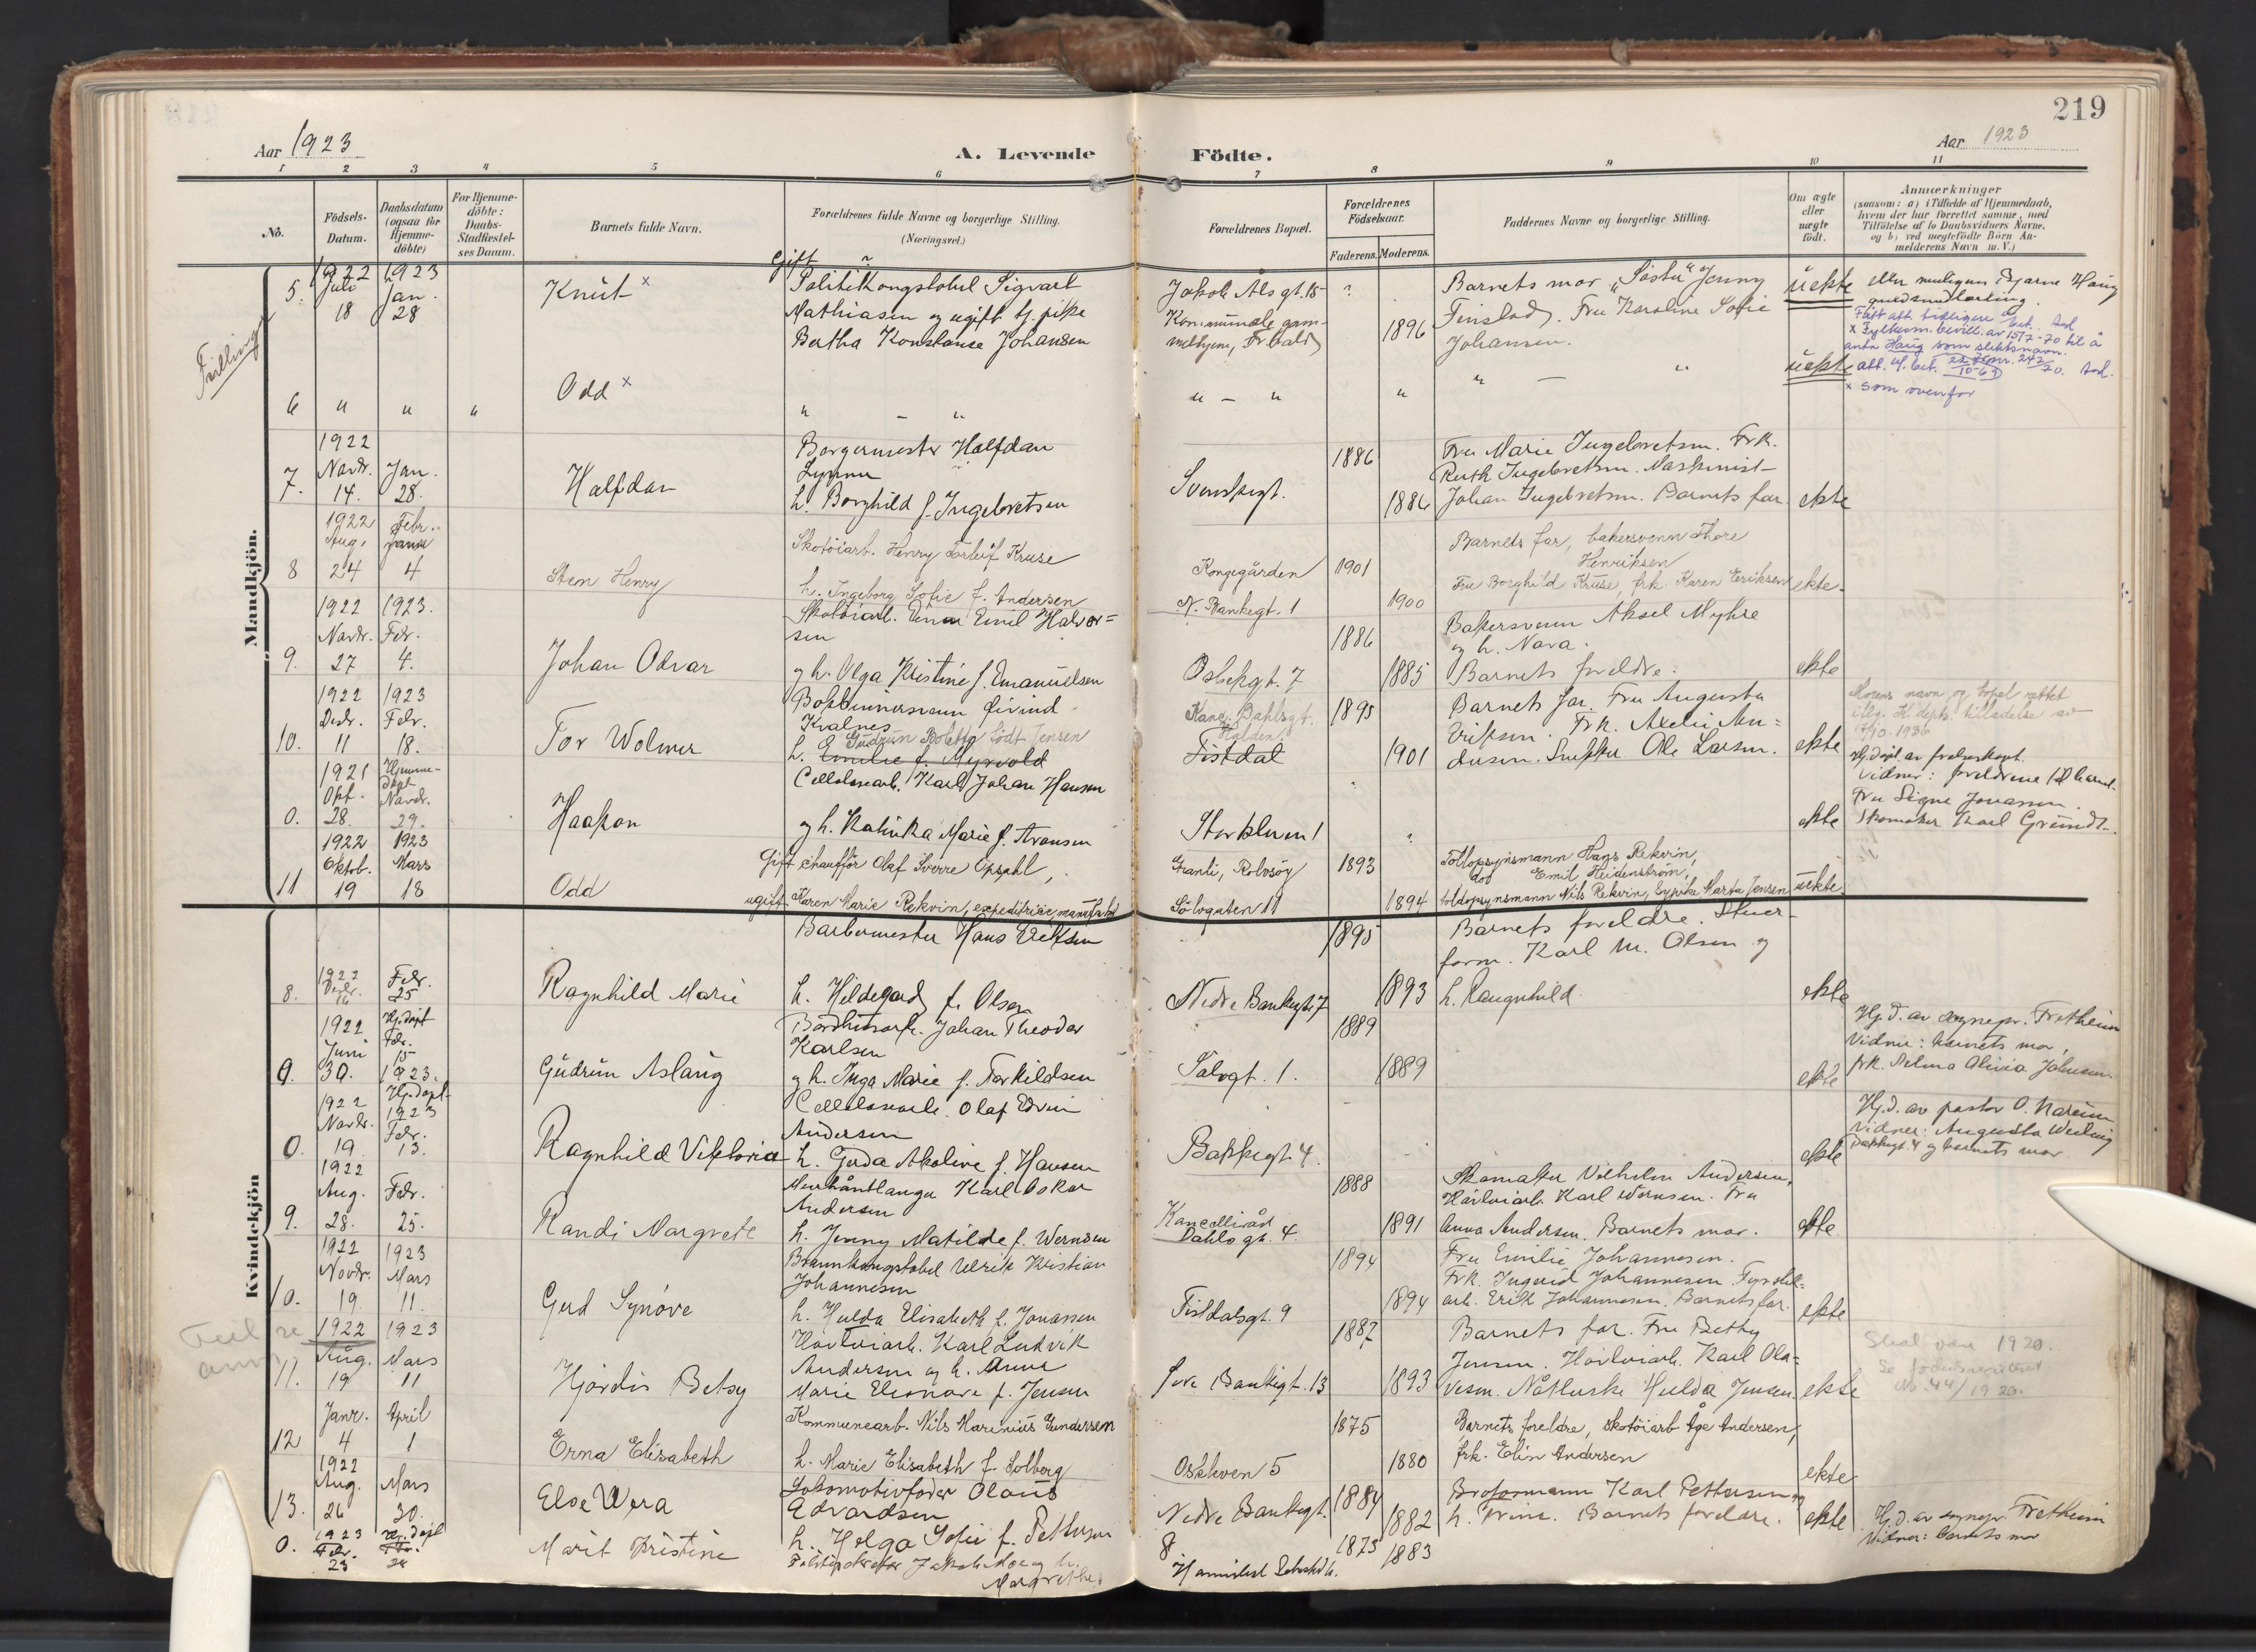 219
Aar 1923
A. Levende
Födte.
Aar 1923
1 2 3 4 5 6 7 8 9 10 11
No.
Födsels-
Datum.
Daabsdatum
(ogsaa for
Hjemme-
döbte)
For Hjemme-
döbte:
Daabs-
Stadfæstel-
ses Datum.
Barnets fulde Navn.
Forældrenes fulde Navne og borgerlige Stilling.
(Næringsvei.)
Forældrenes Bopæl.
Forældrenes
Födselsaar.
Faderens. Moderens.
Faddernes Navne og borgerlige Stilling.
Om ægte
eller
uægte
födt.
Anmærkninger
(saasom: a) i Tilfælde af Hjemmedaab,
hvem der har forrettet samme, med
Tilföielse af to Daabsvidners Navne,
og b) ved uægtefödte Börn An-
melderens Navn m. V.)
Mandkjön.
Tvilling
5.
1922
Juli
18
1923
Jan.
28
Knut x
Gift
Politikonstabel Sigvart
Mathiasen og ugift tj. pike
Bertha Konstanse Johansen
Jakob Als gt. 15
Kommunale gam-
melhjem, Fr.hald
?
1896
Barnets mor, "Søster" Jenny
Finstad, Fru Karoline Sofie
Johansen.
uekte
eller muligens Bjarne Haug
x Fylkesm. bevill. av 15/7-70 til å
anta Haug som slektsnavn.
6 " " "
Odd x
" - "
" - "
"
" - "
uekte
x som ovenfor
7.
1922
Novbr.
14.
Jan.
28.
Halfdan
Borgermester Halfdan
h. Borghild f. Ingebretsen
Svenskegt.
1886
1886
Fru Marie Ingebretsen. Frk.
Ruth Ingebretsen. Maskinist
Johan Ingebretsen. Barnets far.
ekte
8
1922
Aug.
24
Febr.
4
Sten Henry
Skotöiarb. Henry Torleif Kruse
h. Ingeborg Sofie f. Andersen
Kongegården
N. Bankegt. 1
1901
1900
Barnets far, bakersvenn Thore
Henriksen
Fru Borghild Kruse, frk. Karen Eeriksen
ekte.
9.
1922
Novbr.
27
1923.
Febr.
4.
Johan Odvar
Skotöiarb. Einar Emil Halvor=
sen
og h. Olga Kristine f. Emanuelsen
Osbekgt. 7
1886
1885
Bakersvenn Aksel Myhre
og h. Nara.
Barnets foreldre.
ekte
10.
1922
Desbr.
11
1923
Febr.
18.
Tor Wolmer
Bokbindersvenn Øivind
Kvalnes
h. Gudrun Boletta født Jensen
Emilie f. Myrvold
Kanc. Dahlsgt.
Halden.
Fistdal
1895
1901
Barnets far. Fru Augusta
Eriksen. Frk. Axelie An=
dersen. Snekker Ole Larsen.
ekte
Morens navn og bopel rettet
iflg. K. depts. tilladelse av
7/10. 1936
0.
1921
Okt.
28.
Hjemme-
döpt
Novbr.
29.
Haakon
Cellulosearb. Karl Johan Hansen
og h. Kalinka Marie f. Aronsen
Storkleven 1
"
ekte
Hj.döpt av frelseskapt.
Vidner: foreldrene til barnet.
Fru Signe Jonassen.
Skomaker Karl Grundt.
11
1922
Oktob.
19
1923
Mars
18
Odd
Gift chauffør Olaf Sverre Opsahl,
ugift Karen Marie Rekvin, expeditrice,
Granli, Rolvsöy
Sölvgaten 11
1893
1894
Tollopsynsmann Hans Rekvin,
do Emil Heidenström,
toldopsynsmann Nils Rekvin, Sypike Marta Jensen
uekte
Kvindekjön
8.
1922
Desbr.
16
Febr.
25
Ragnhild Marie
Barbermester Hans Eriksen
h. Hildegard f. Olsen
Nedre Bankegt. 7
1895
1893
Barnets foreldre. Stuer-
form. Karl M. Olsen og
h. Raugnhild.
ekte
9.
1922
Juni
30.
Hj.döpt
Febr.
15
1923.
Gudrun Aslaug
Johan Theodor
Karlsen
og h. Inga Marie f. Torkildsen
Sølvgt. 1.
1889
1889
ekte
Hj.d. av sognepr. Fretheim
Vidner: barnets mor,
frk. Selma Olivia Johnsen.
0.
1922
Novbr.
19
Hj.döpt
1923
Febr.
13.
Ragnhild Viktoria
Cellulosearb. Olaf Edvin
Andersen
h. Gerda Akoline f. Hansen
Bakkegt 4.
ekte
Hj.d. av pastor O. Mareim
Vidner: Augusta
Bakkegt. 4 og barnets mor.
9.
1922
Aug.
28.
Febr.
25.
Randi Margrete
Murhåntlanger Karl Oskar
Andersen
h. Jenny Matilde f. Wernsen
Kancelliråd
Dahls gt. 4.
1888
1891
Skomaker Vilhelm Andersen,
Hövleriarb. Karl Wernsen. Fru
Anna Andersen. Barnets mor.
ekte.
10.
1922
Novbr.
19.
1923
Mars
11.
Gerd Synöve
Brannkonstabel Ulrik Kristian
Johannesen
h. Hulda Elisabeth f. Jonassen
Fistdalsgt. 9
1894
1894
Fru Emilie Johannesen.
Frk. Ingrid Johannesen. Fyrstik=
arb. Erik Johannesen. Barnets far.
ekte
Feil
11.
1922
Aug.
19
1923
Mars
11
Hjördis Betsy
Høvleriarb. Karl Ludvik
Andersen og h. Anna
Marie Elionore f. Jensen
Øvre Bankegt. 13
1887
1893
Barnets far. Fru Bethy
Jensen. Høvleriarb. Karl Ola=
vesen. Nåtlerske Hulda Jensen.
ekte
Skal være 1920.
Se fødselsregisteret
No 44/1920.
12
Janr.
4
April
1
Erna Elisabeth
Kommunearb. Nils Marinius Gundersen
h. Marie Elisabeth f. Solberg
Oskleven 5
1875
1880
Barnets foreldre, skotöiarb Åge Andersen,
frk. Elin Andersen
ekte
13.
1922
Aug.
26
Mars
30.
Else Wera
Lokomotivfører Olaus
Edvardsen
h. Helga Sofie f. Pettersen
Nedre Bankegt.
8
1884
1882
Broformann Karl Pettersen og
h. Trine. Barnets foreldre.
ekte
0.
1923
Febr.
23
Hj.döpt
Febr.
24
Marit Kristine
Margrethe
1873
1883
Hj.d. av sognepr. Fretheim
Vidner: barnets mor